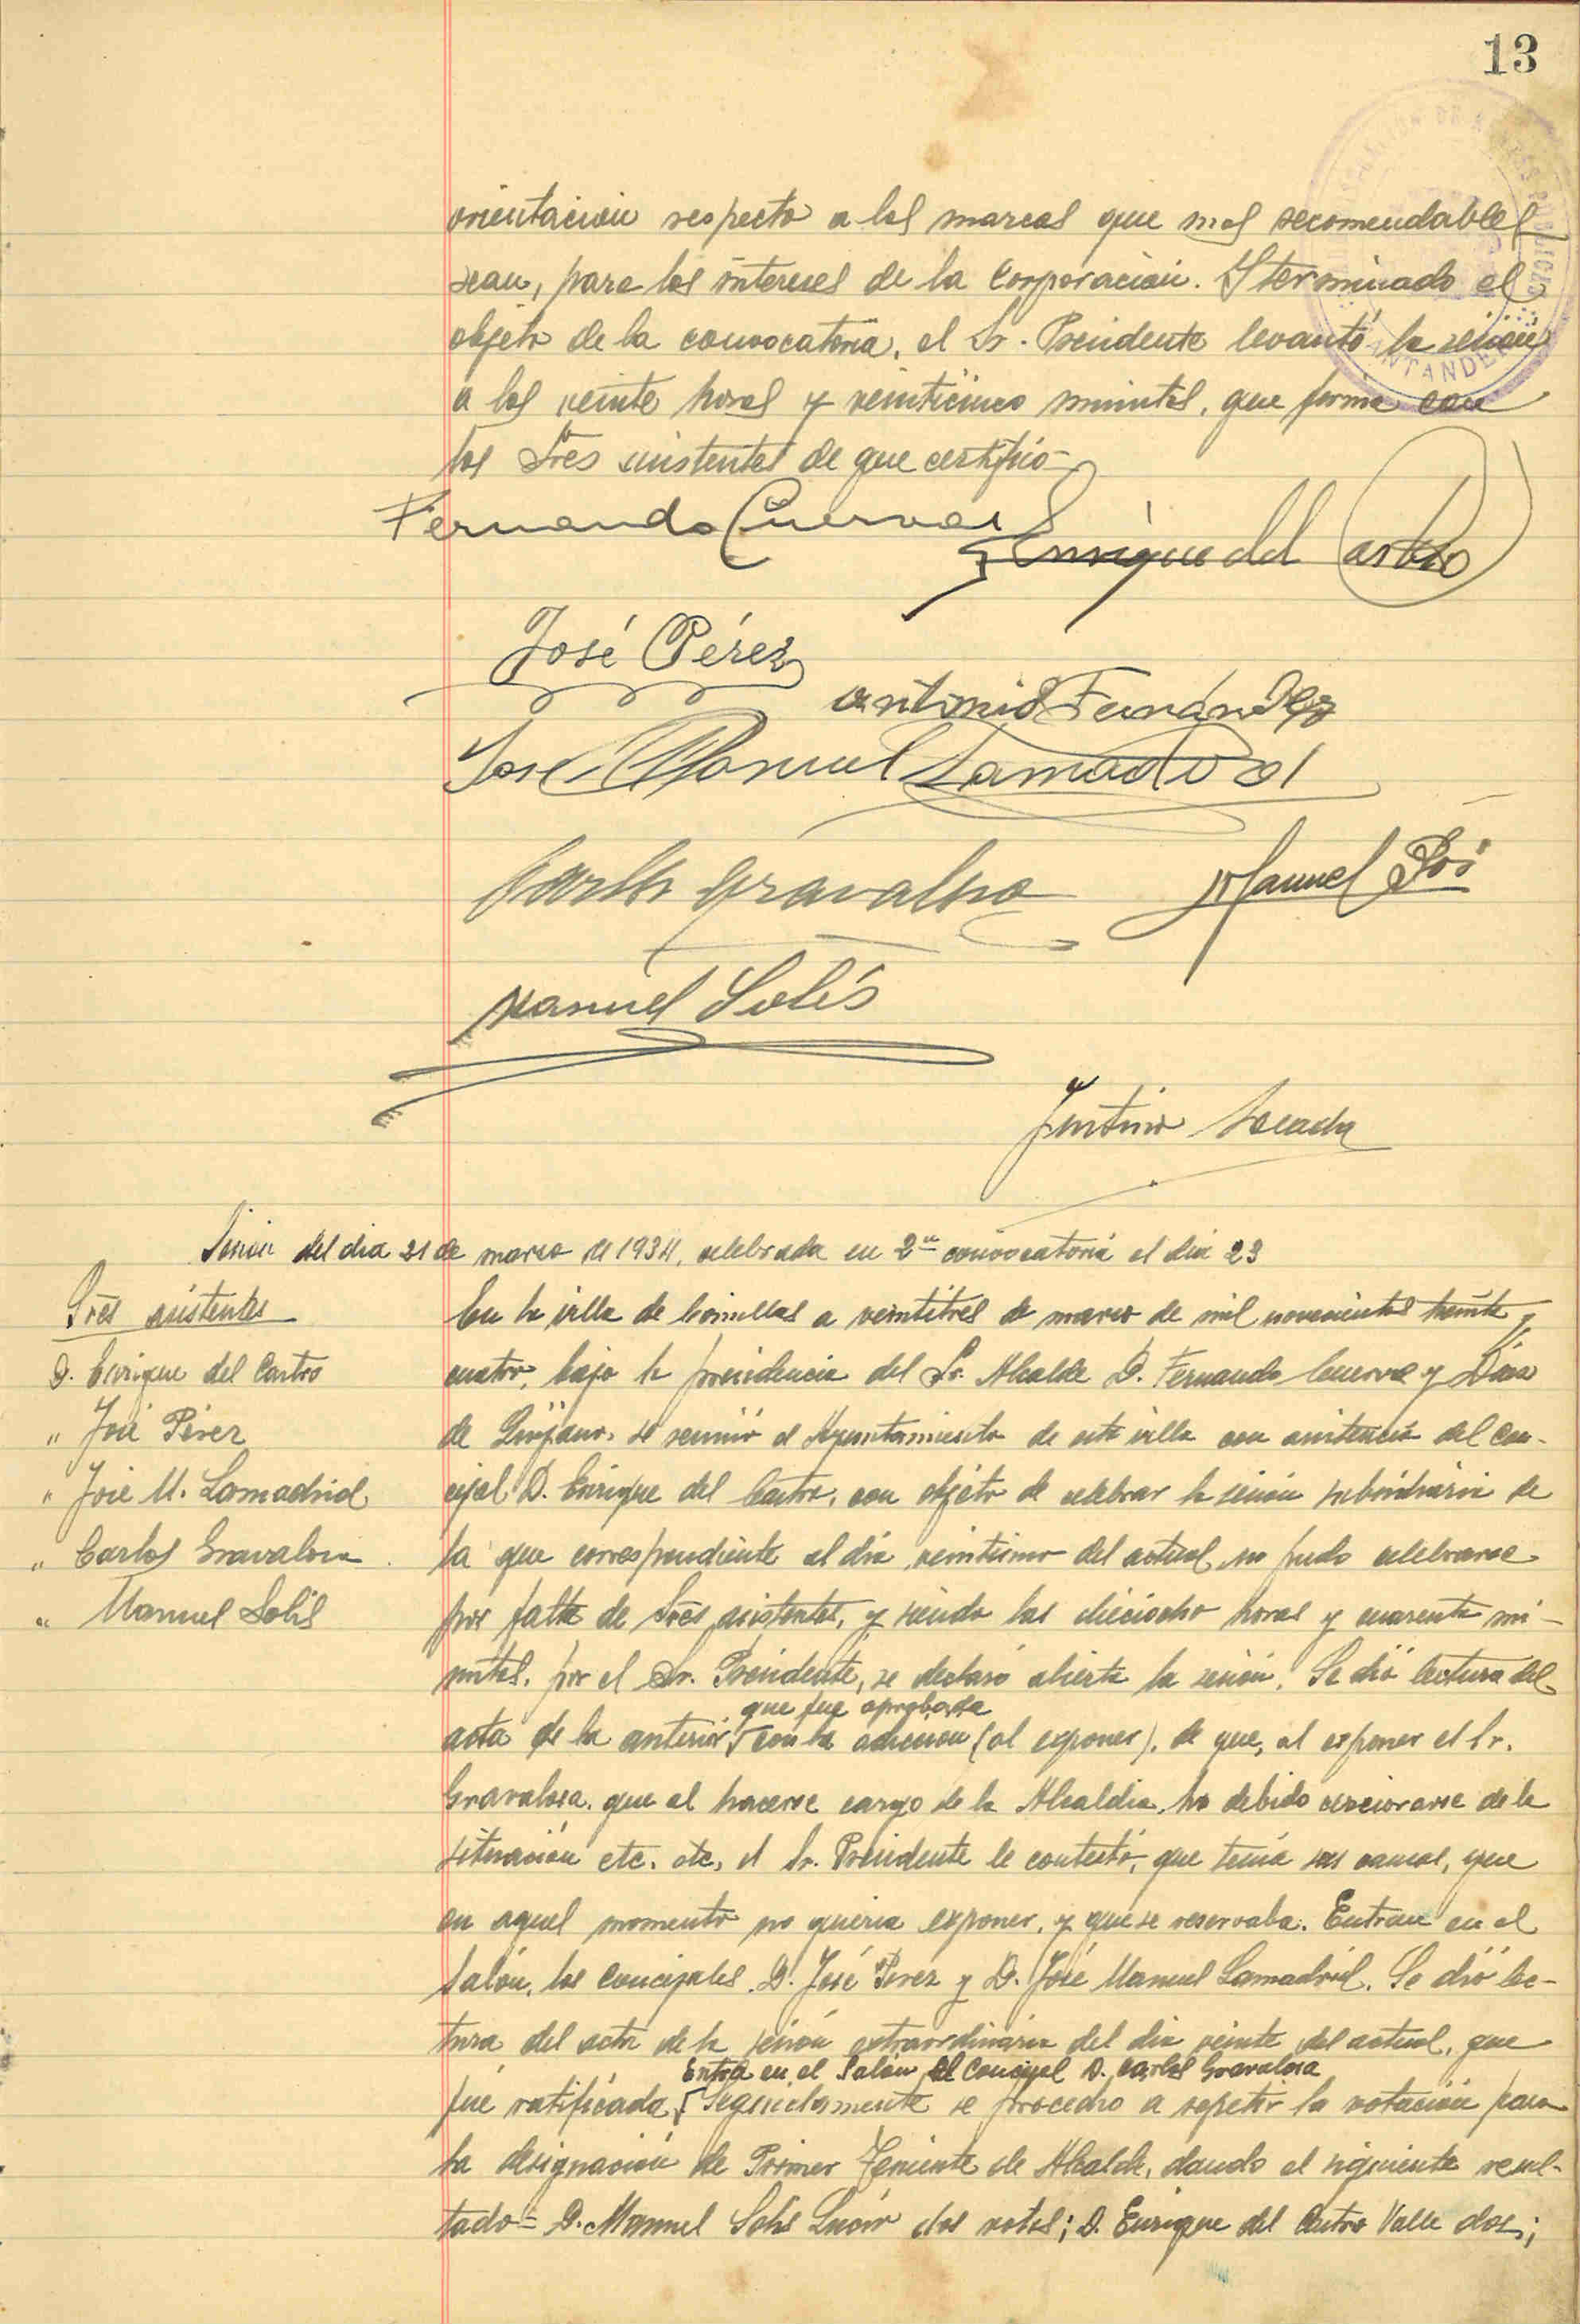 13
orientación respecto a las marcas que mas recomendables
sean, para los intereses de la Corporación. Y terminado el
objeto de la convocatoria, el Sr. Presidente levantó la sesión
a las veinte horas y veinticinco minutos, que firma con
los Sres asistentes de que certifico=
Fernando Cuervas
Enrique del Castro
José Pérez
Antonio Fernández
José Manuel Lamadrid
Carlos Gravalosa
Manuel
Manuel Solís
Justino
SANTANDER
Sesión del dia 21 de marzo de 1934, celebrada en 2ª convocatoria el dia 23
Sres asistentes
D. Enrique del Castro
" José Pérez
" José M. Lamadrid
" Carlos Gravalosa
" Manuel Solís
En la villa de Comillas a veintitres de marzo de mil novecientos treinta y
cuatro, bajo la presidencia del Sr. Alcalde D. Fernando Cuervas y Díaz
de Quijano, se reunió el Ayuntamiento de esta villa con asistencia del Con-
cejal D. Enrique del Castro, con objeto de celebrar la sesión subsidiaria de
la que correspondiente al día veintiuno del actual no pudo celebrarse
por falta de Sres asistentes, y siendo las dieciocho horas y cuarenta mi-
nutos, por el Sr. Presidente, se declaró abierta la sesión. Se dió lectura del
que fue aprobada
acta de la anterior con la adhesion (al exponer), de que, al exponer el Sr.
Gravalosa, que al hacerse cargo de la Alcaldia, ha debido cerciorarse de la
situación etc. etc, el Sr. Presidente le contestó, que tenía sus causas, que
en aquel momento no queria exponer, y que se reservaba. Entran en el
Salón, los Concejales D. José Perez y D. José Manuel Lamadrid. Se dió lec-
tura del acta de la sesión extraordinaria del dia veinte del actual, que
Entra en el Salón el Concejal D. Carlos Gravalosa
fué ratificada. Seguidamente se procedio a repetir la votación para
la designación de Primer Teniente de Alcalde, dando el siguiente resul-
tado= D. Manuel Solis dos votos; D. Enrique del Castro Valle dos;